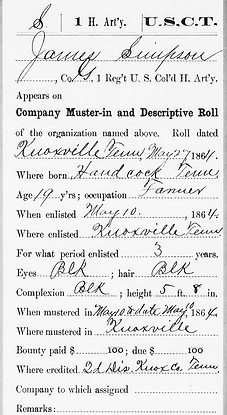 S | 1 H. Art'y. | U.S.C.T.
James Simpson
......, Co. G, 1 Reg't U. S. Col'd H. Art'y.
Appears on
Company Muster-in and Descriptive Roll
of the organization named above. Roll dated
Knoxville Tenn, May 27, 1864.
Where born Handcock Tenn.
Age 19 y'rs; occupation Farmer
When enlisted May 10., 1864
Where enlisted Knoxville Tenn
For what period enlisted 3 years.
Eyes Blk; hair Blk
Complexion Blk; height 5 ft. 8 in.
When mustered in May 10. to date May 10, 1864
Where mustered in Knoxville
Bounty paid $ 100; due $ 100
Where credited 2d Div. Knox Co. Tenn.
Company to which assigned
Remarks: